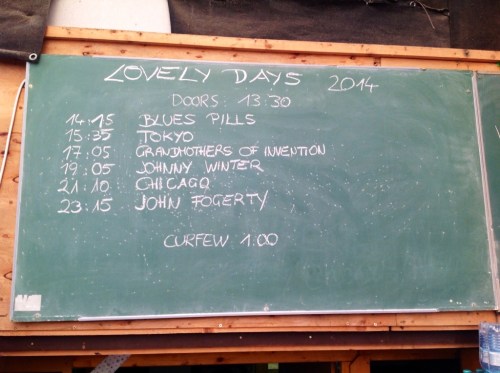 LOVELY DAYS 2014
DOORS: 13:30
14:15 BLUES PILLS
15:35 TOKYO
17:05 GRANDMOTHERS OF INVENTION
19:05 JOHNNY WINTER
21:10 CHICAGO
23:15 JOHN FOGERTY
CURFEW 1.00